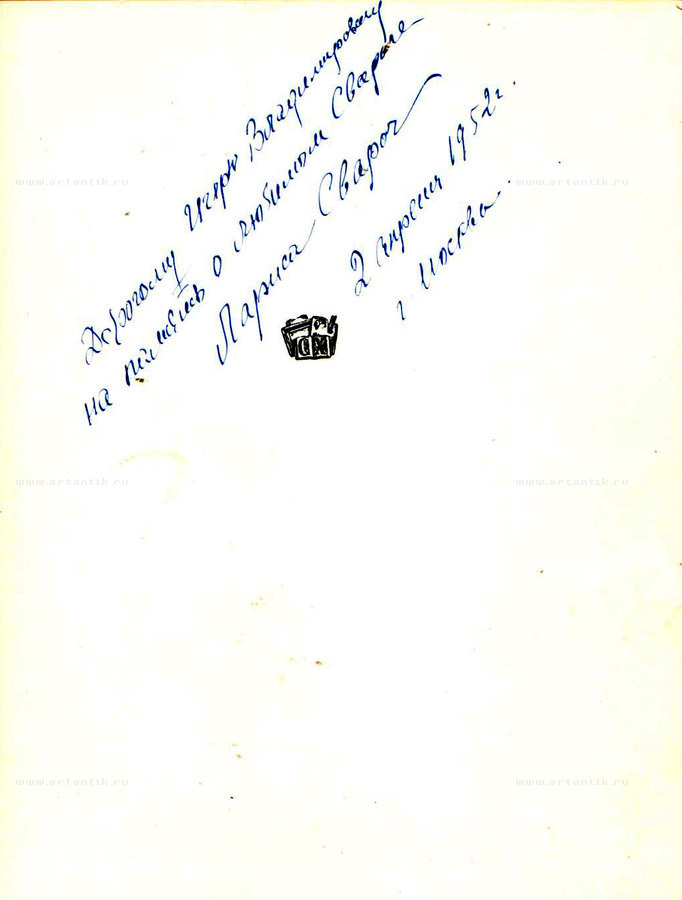 Дорогому Игорю Владимировичу
на память о любимом Свароге
Лариса Сварог
2 апреля 1952 г.
г. Москва.
www.artantik.ru
www.artantik.ru
www.artantik.ru
www.artantik.ru
www.artantik.ru
www.artantik.ru